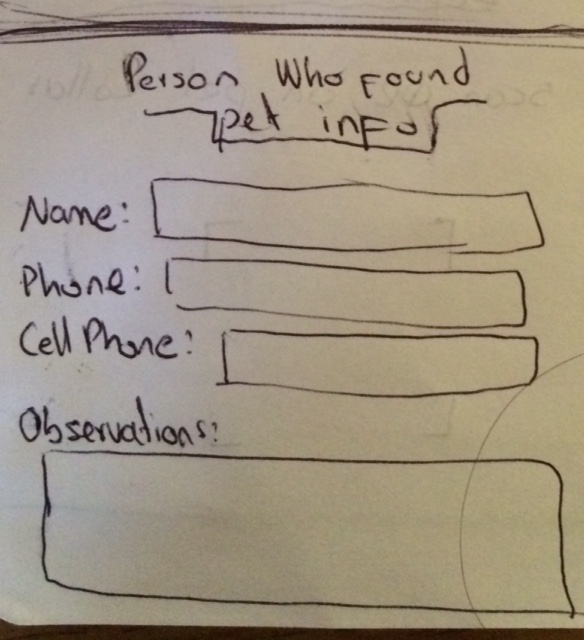 Person Who Found
pet info
Name:
Phone:
Cell Phone:
Observations: